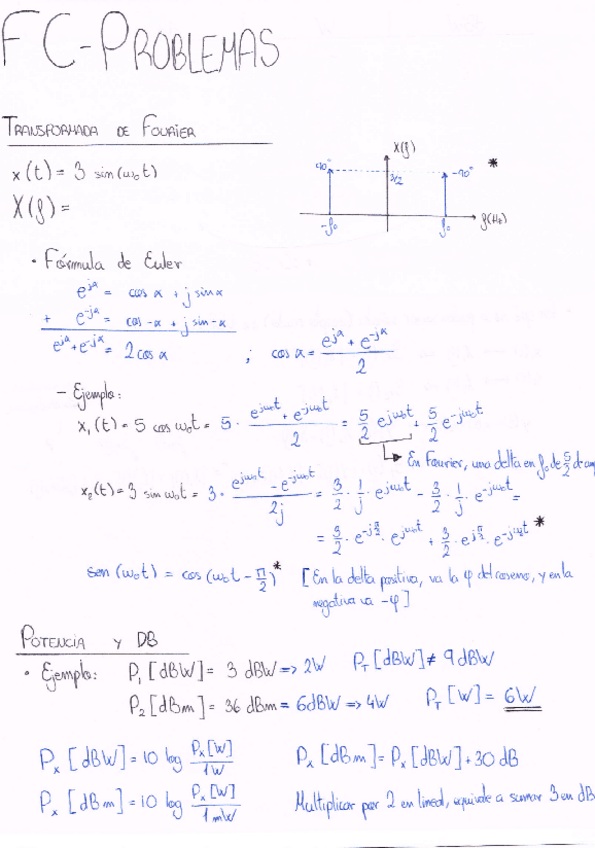 FC-PROBLEMAS
TRANSFORMADA DE FOURIER
x(t) = 3 sin(ω₀t)
X(f) =
X(f)
90°
3/2
-90° *
-f₀
f₀
f(Hz)
• Fórmula de Euler
e^{jα} = cos α + j sin α
+ e^{-jα} = cos -α + j sin -α
e^{jα} + e^{-jα} = 2 cos α ; cos α = (e^{jα} + e^{-jα})/2
- Ejemplo:
x₁(t) = 5 cos ω₀t = 5 · (e^{jω₀t} + e^{-jω₀t})/2 = 5/2 e^{jω₀t} + 5/2 e^{-jω₀t}
En Fourier, una delta en f₀ de 5/2 de
x₂(t) = 3 sin ω₀t = 3 · (e^{jω₀t} - e^{-jω₀t})/2j = 3/2 · 1/j · e^{jω₀t} - 3/2 · 1/j · e^{-jω₀t} =
= 3/2 · e^{-jπ/2} · e^{jω₀t} + 3/2 · e^{jπ/2} · e^{-jω₀t} *
sen(ω₀t) = cos(ω₀t - π/2)* [En la delta positiva, va la φ del coseno, y en la
negativa va -φ]
POTENCIA Y DB
• Ejemplo: P₁[dBW] = 3 dBW => 2W P_T[dBW] ≠ 9 dBW
P₂[dBm] = 36 dBm = 6dBW => 4W P_T[W] = 6W
Pₓ[dBW] = 10 log Pₓ[W]/1W Pₓ[dBm] = Pₓ[dBW] + 30 dB
Pₓ[dBm] = 10 log Pₓ[W]/1mW Multiplicar por 2 en lineal, equivale a sumar 3 en dB